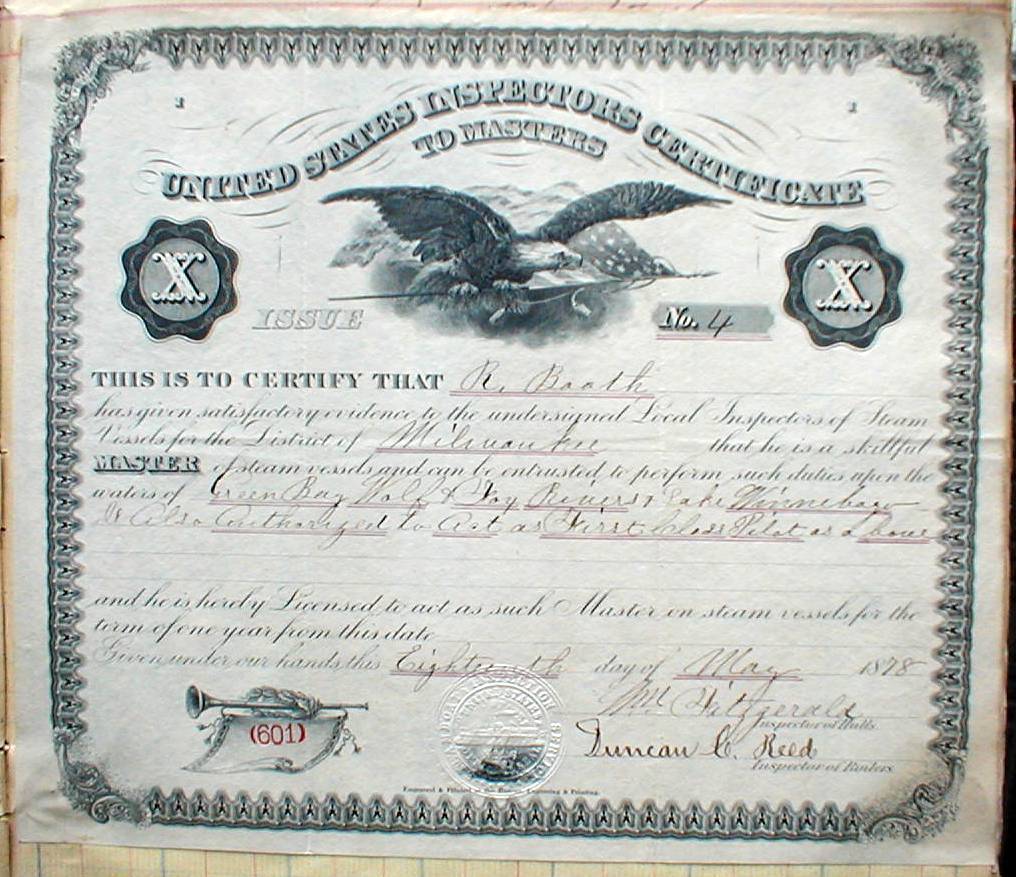 UNITED STATES INSPECTORS CERTIFICATE
TO MASTERS
X
X
ISSUE
No. 4
THIS IS TO CERTIFY THAT R. Booth
has given satisfactory evidence to the undersigned Local Inspectors of Steam
Vessels for the District of Milwaukee that he is a skillful
MASTER of steam vessels and can be entrusted to perform such duties upon the
waters of Green Bay Wolf & Fox Rivers & Lake Winnebago
Is Also Authorized to Act as First Class Pilot as above
and he is hereby Licensed to act as such Master on steam vessels for the
term of one year from this date
Given under our hands this Eighteenth day of May 1878
Wm Fitzgerald
Inspector of Hulls.
(601)
Duncan C. Reed
Inspector of Boilers
Engraved & Printed Engraving & Printing.